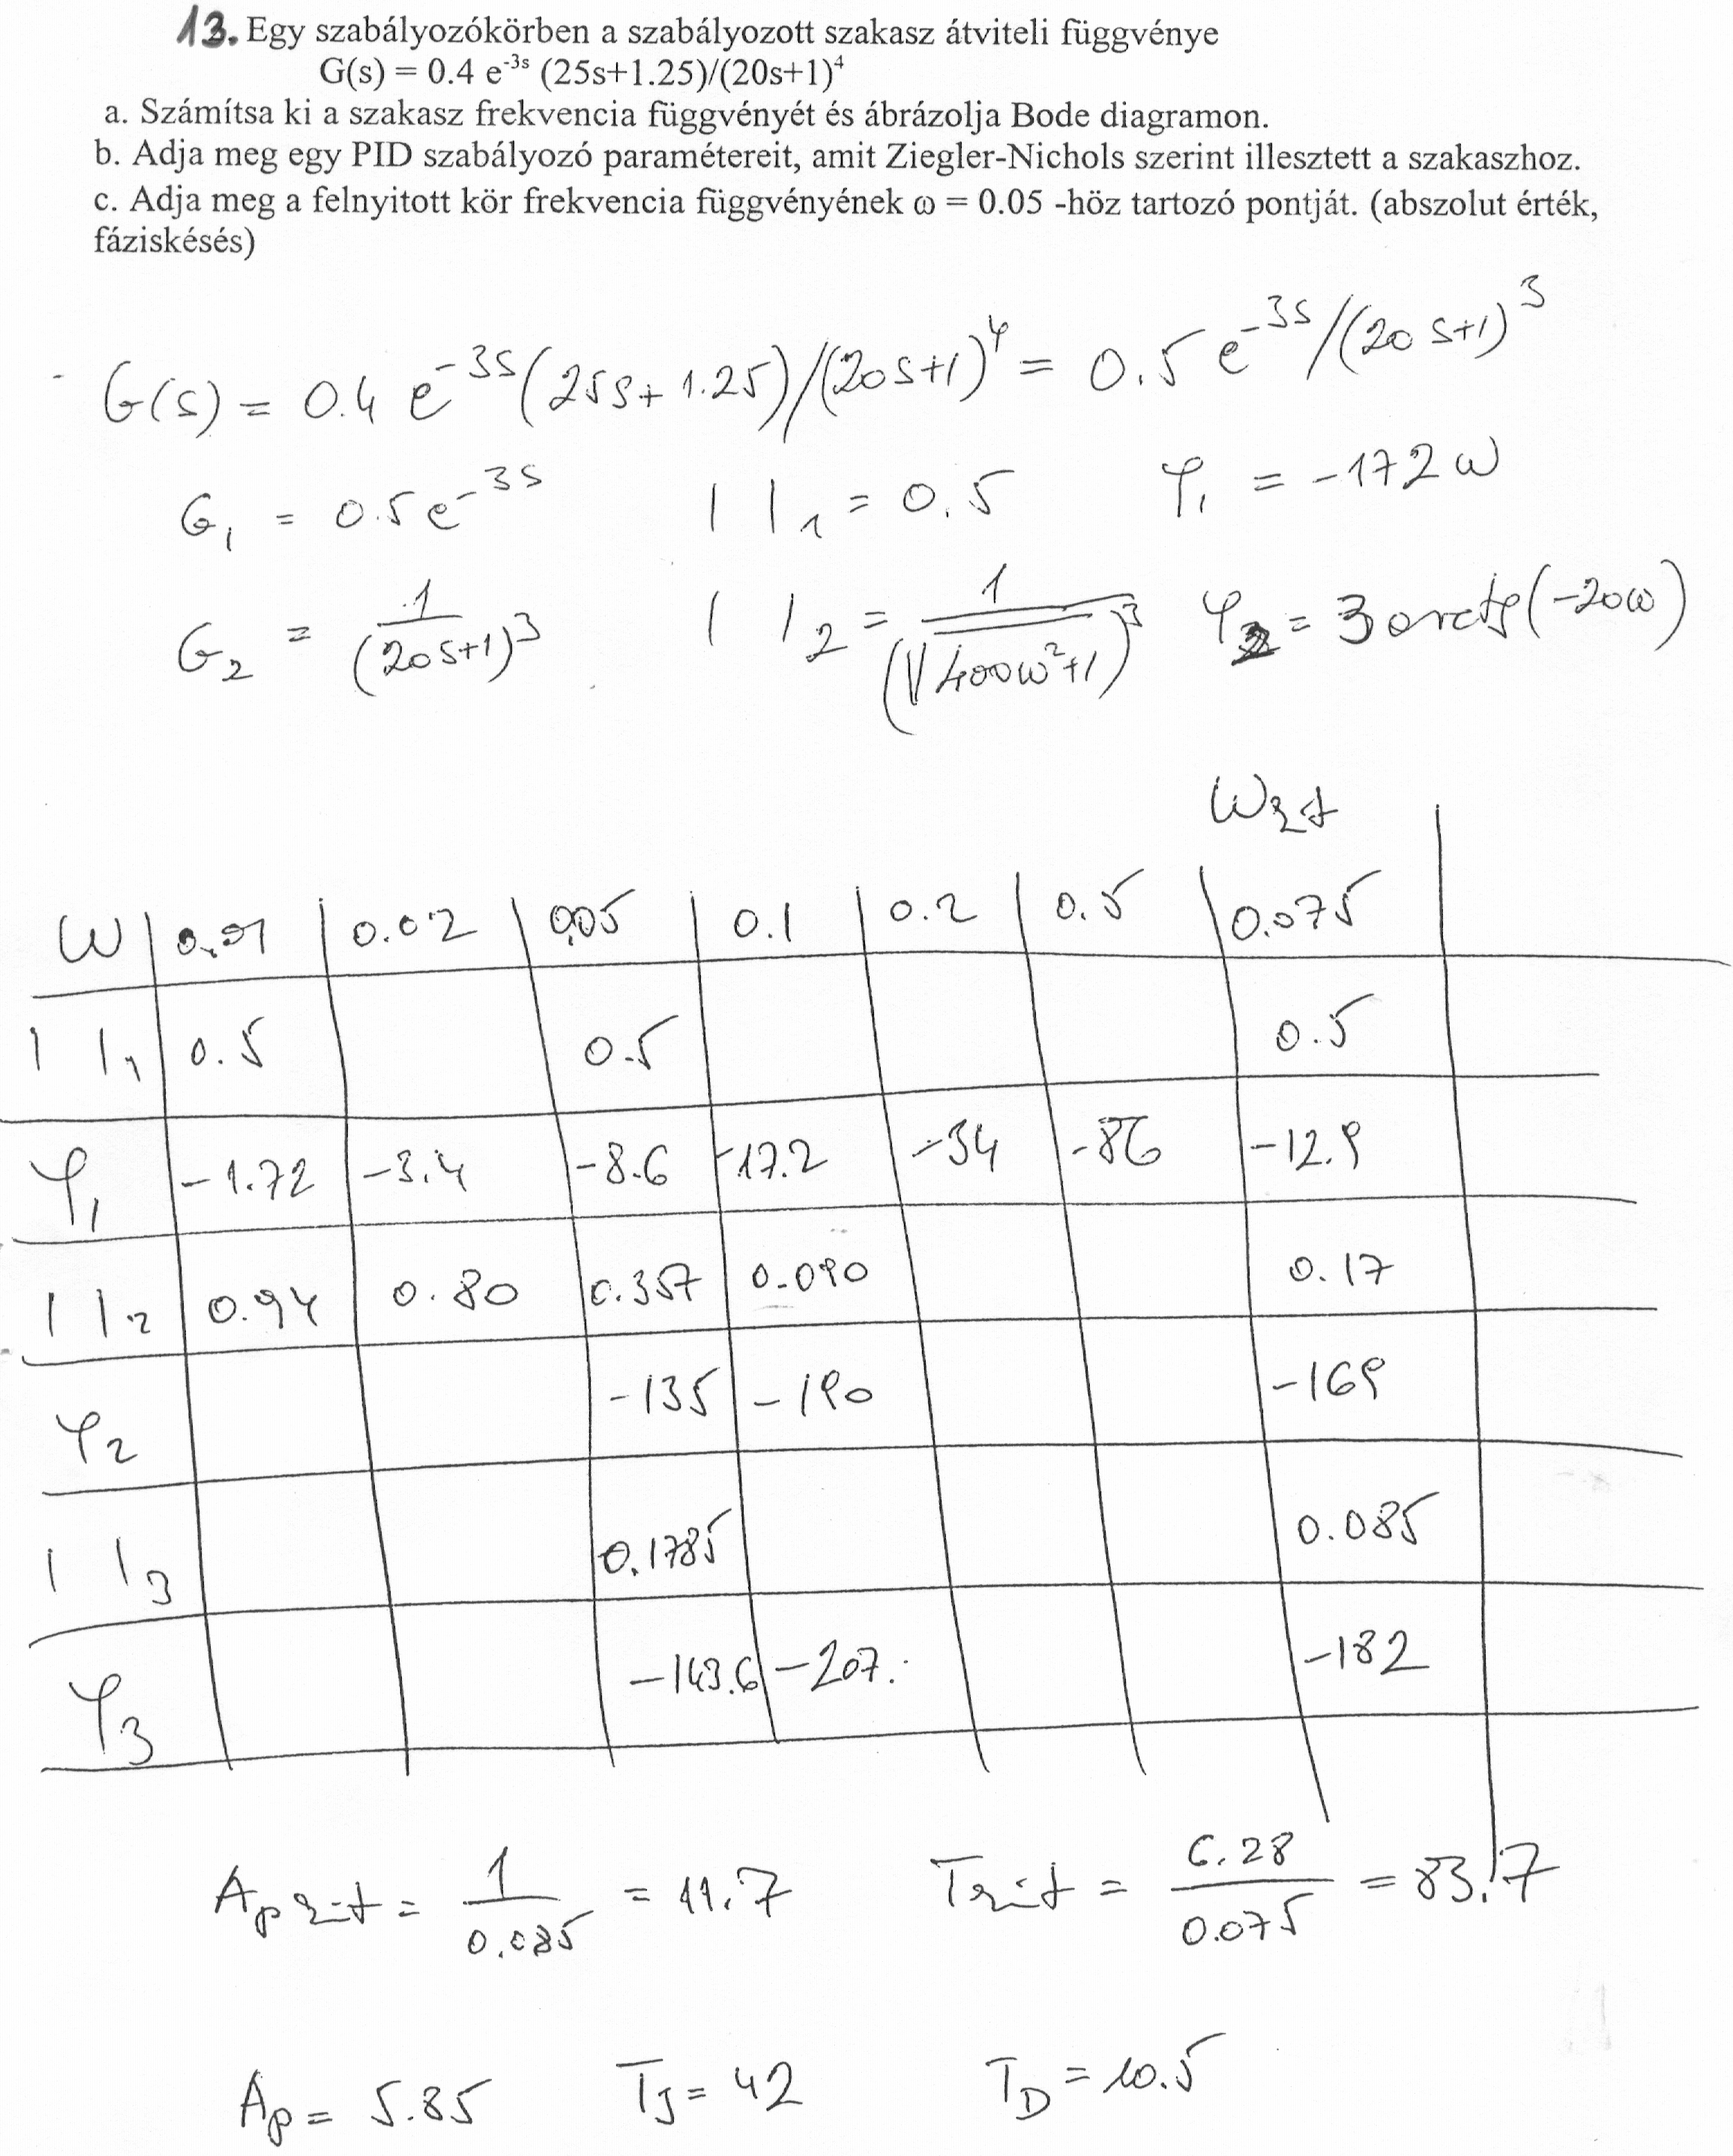 13. Egy szabályozókörben a szabályozott szakasz átviteli függvénye
G(s) = 0.4 e⁻³ˢ (25s+1.25)/(20s+1)⁴
a. Számítsa ki a szakasz frekvencia függvényét és ábrázolja Bode diagramon.
b. Adja meg egy PID szabályozó paramétereit, amit Ziegler-Nichols szerint illesztett a szakaszhoz.
c. Adja meg a felnyitott kör frekvencia függvényének ω = 0.05 -höz tartozó pontját. (abszolut érték,
fáziskésés)
G(s) = 0.4 e⁻³ˢ (25s+1.25)/(20s+1)⁴ = 0.5 e⁻³ˢ/(20s+1)³
G₁ = 0.5e⁻³ˢ | |₁ = 0.5 φ₁ = -172ω
G₂ = 1/(20s+1)³ | |₂ = 1/(√400ω²+1)³ φ₂ = 3 arctg(-20ω)
ωkrit
ω 0.01 0.02 0.05 0.1 0.2 0.5 0.075
| |₁ 0.5 0.5 0.5
φ₁ -1.72 -3.4 -8.6 -17.2 -34 -86 -12.9
| |₂ 0.94 0.80 0.357 0.090 0.17
φ₂ -135 -190 -169
| |₃ 0.1785 0.085
φ₃ -143.6 -207. -182
Ap krit = 1/0.085 = 11.7 Tkrit = 6.28/0.075 = 83.7
Ap = 5.85 TI = 42 TD = 10.5